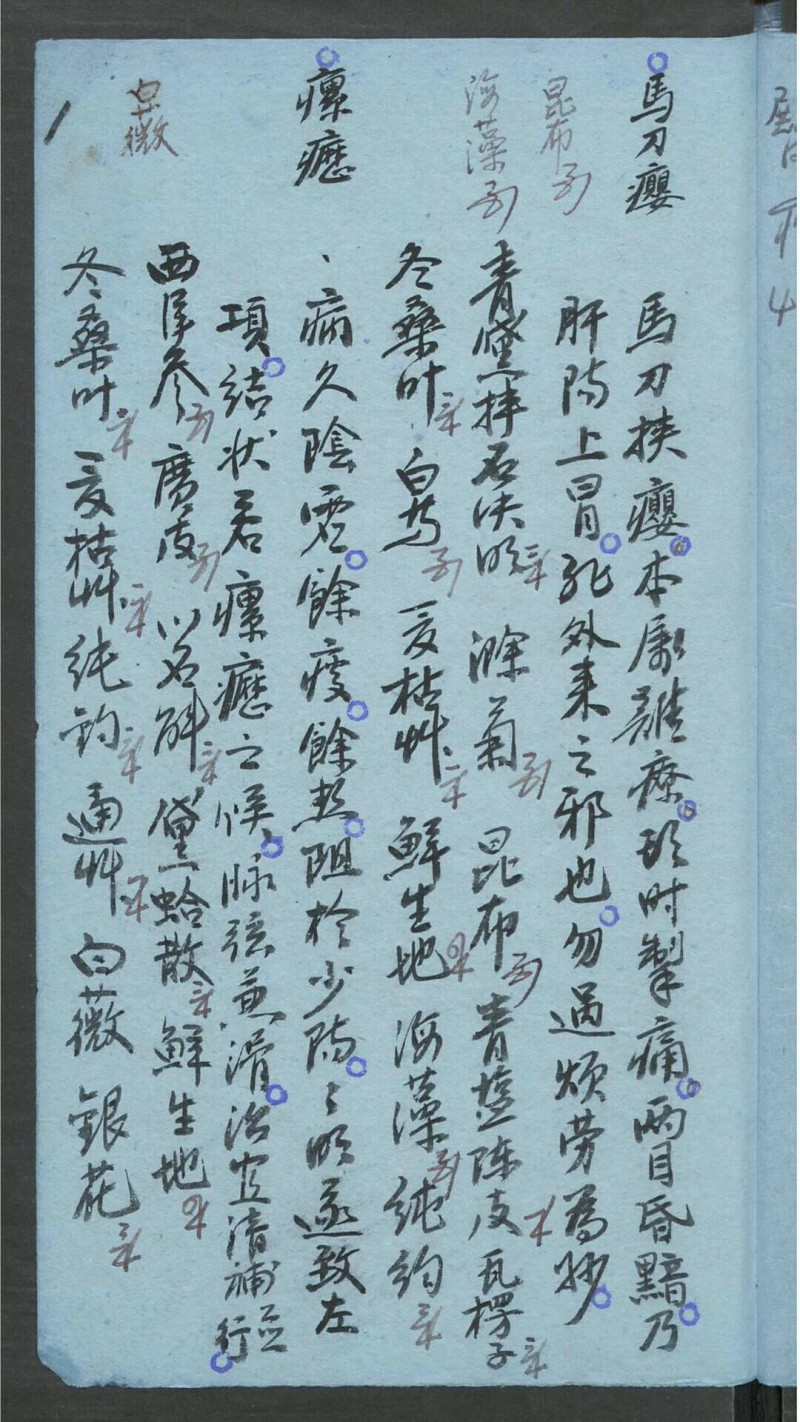 馬刀癭
馬刀挾癭本屬難療頭時掣痛兩目昏黯乃
肝陽上冒非外來之邪也勿過煩勞為妙
昆布
海藻
青黛拌石決明 滁菊 昆布 青盐陈皮 瓦楞子
冬桑叶 白芍 夏枯艸 鮮生地 海藻 純鈎
瘰癧
病久陰虛餘痰餘熱阻於少陽〻明遂致左
項結状若瘰癧之候脉弦兼滑治宜清補並行
西洋参 廣皮 川石斛 黛蛤散 鮮生地
白薇
冬桑叶 夏枯艸 純鈎 通艸 白薇 銀花